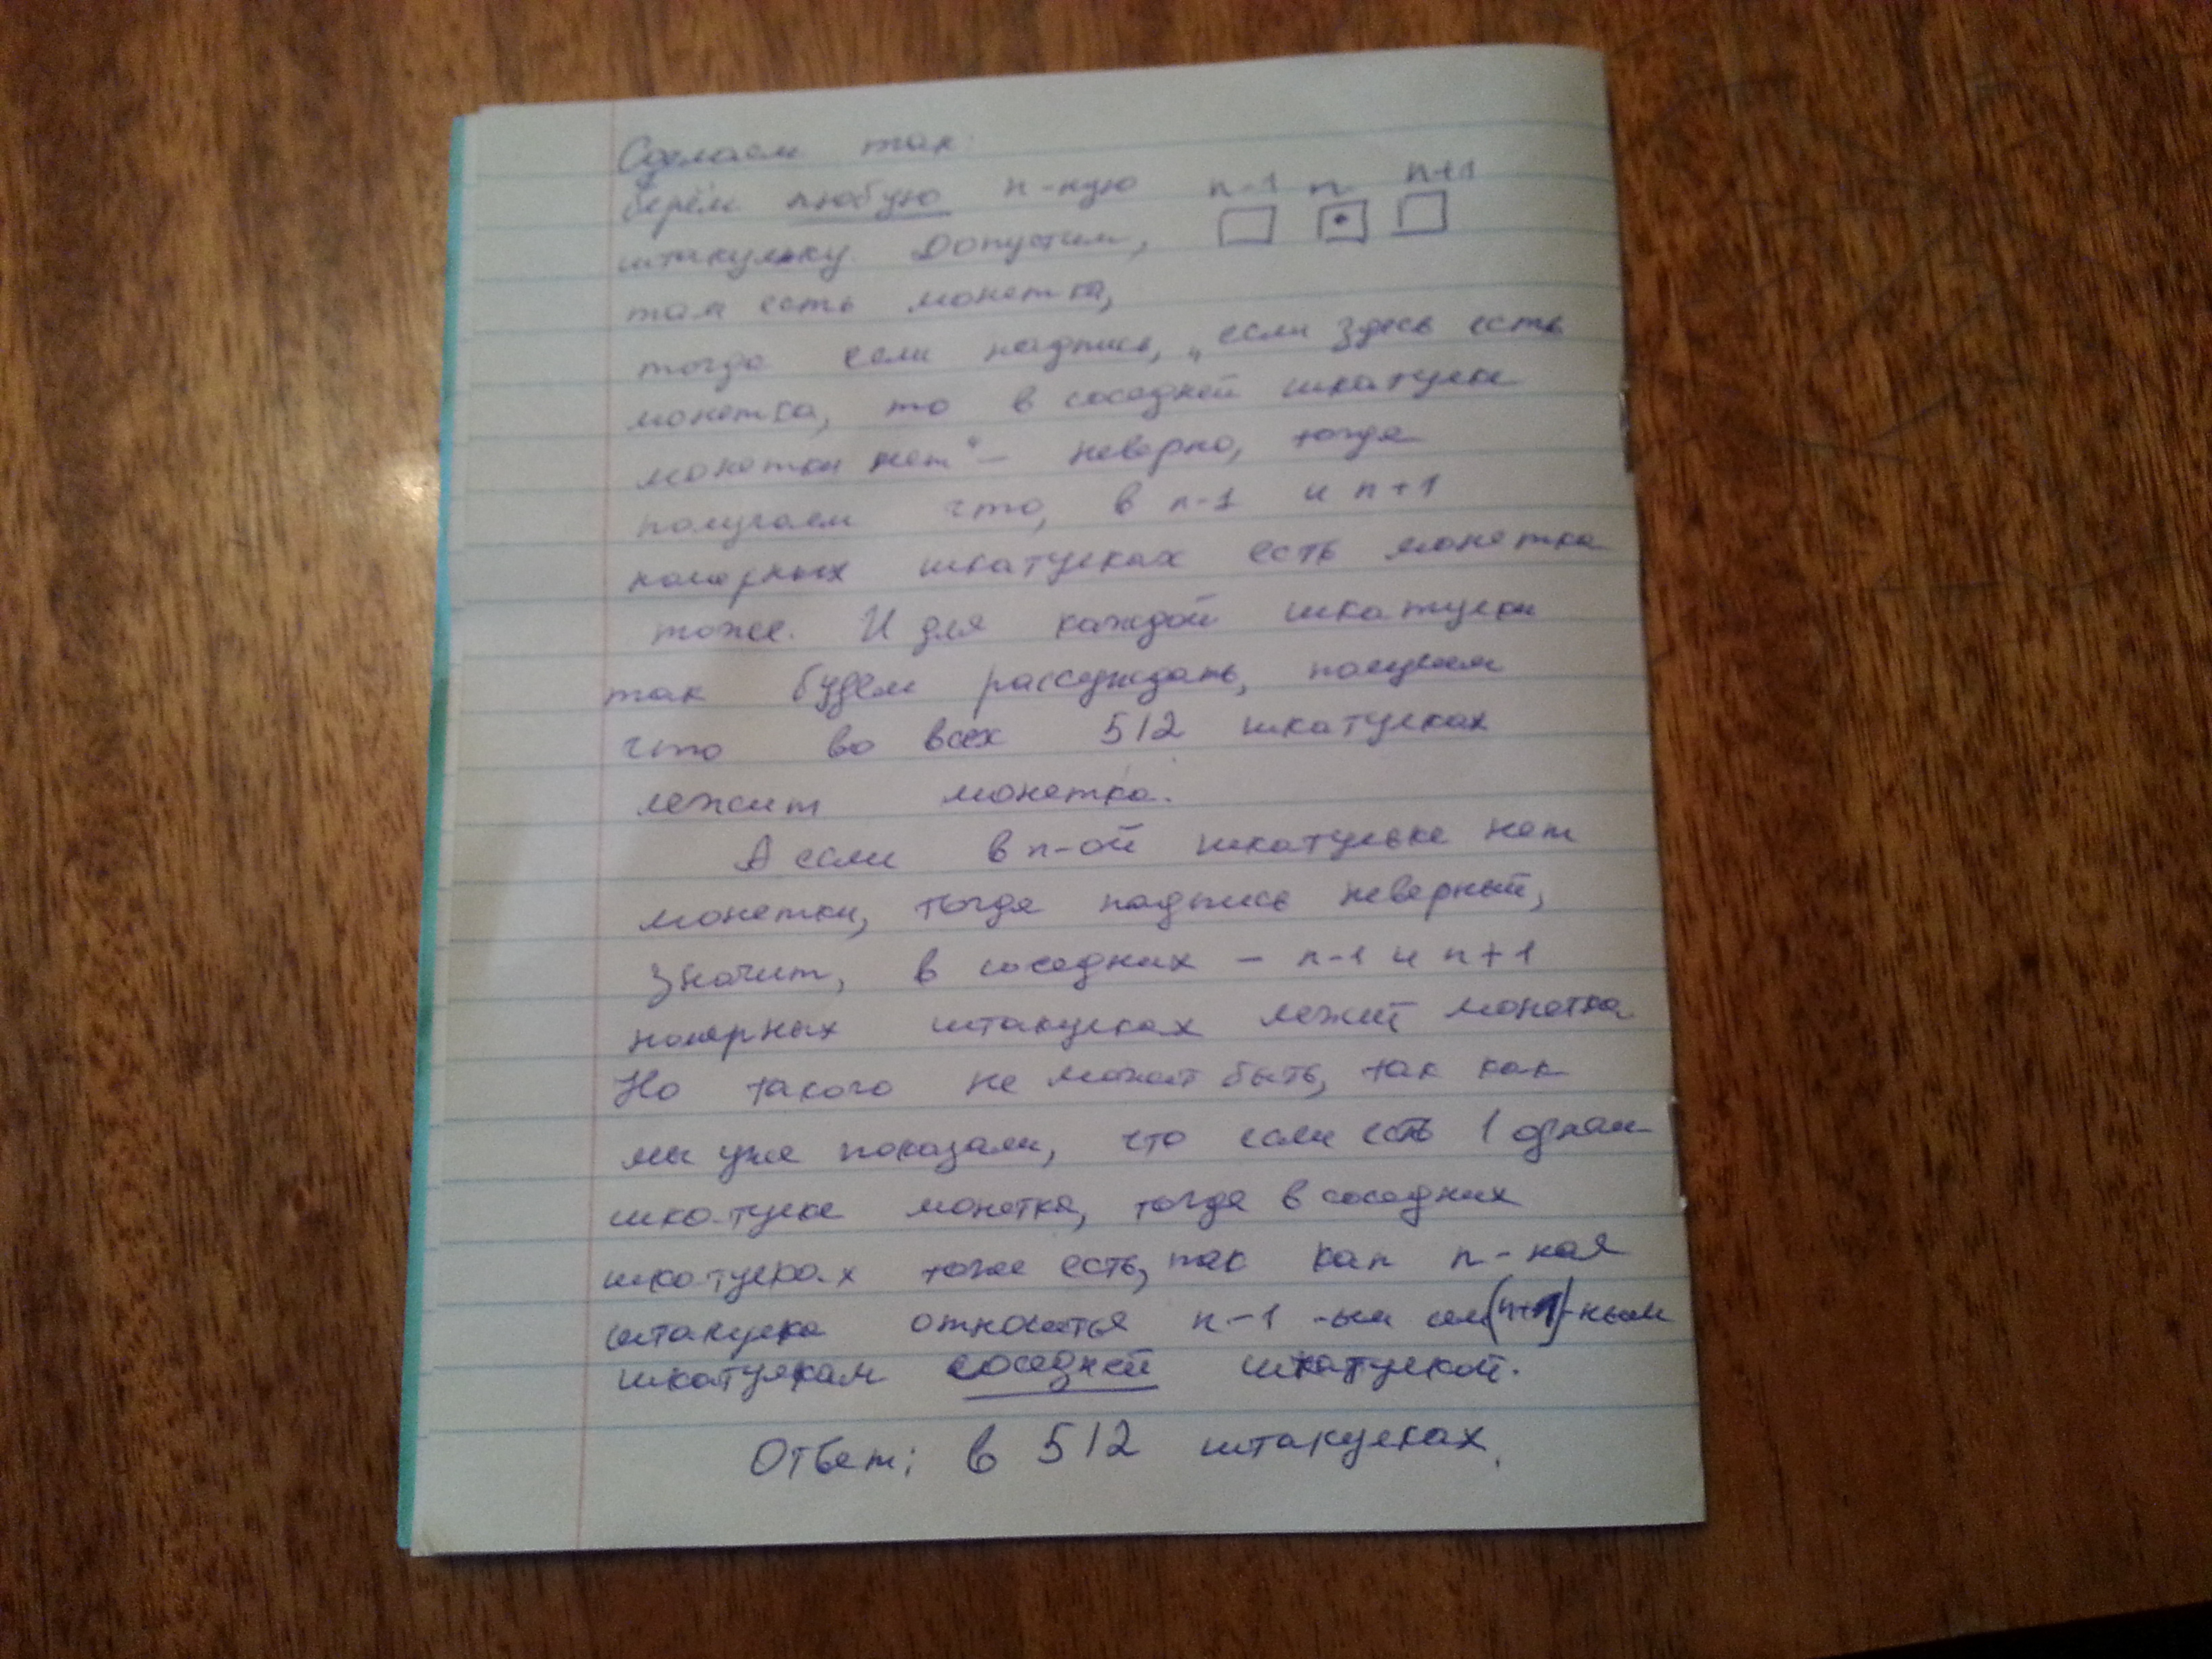 Сделаем так:
берём любую n-ную n-1 n n+1
штакульку. Допустим,
там есть монетка,
тогда если надпись, „если здесь есть
монетка, то в соседней шкатулке
монетки нет“ - неверно, тогда
получаем что, в n-1 и n+1
номерных шкатулках есть монетка
тоже. И для каждой шкатулки
так будем рассуждать, получаем
что во всех 512 шкатулках
лежит монетка.
А если в n-ой шкатульке нет
монетки, тогда надпись неверный,
значит, в соседних - n-1 и n+1
номерных штакулках лежит монетка.
Но такого не может быть, так как
мы уже показали, что если есть 1 одной
шкатулке монетка, тогда в соседних
шкатулках тоже есть, так как n-ная
штакулка относиться n-1 -ым (n+1)-ным
шкатулкам соседней шкатулкой.
Ответ: в 512 штакулках.